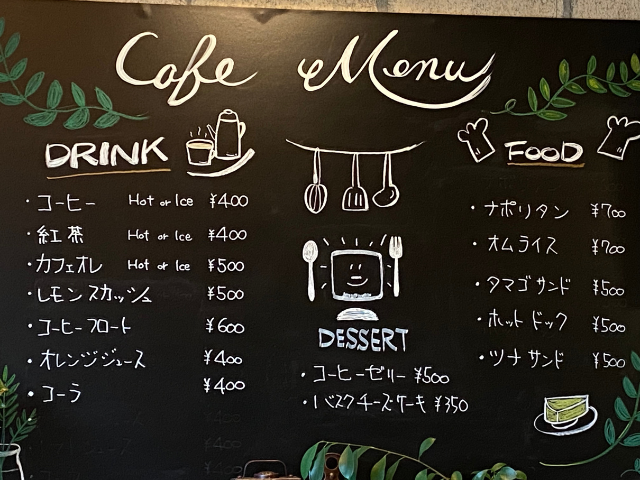 Cafe Menu
DRINK
・コーヒー Hot or Ice ¥400
・紅茶 Hot or Ice ¥400
・カフェオレ Hot or Ice ¥500
・レモンスカッシュ ¥500
・コーヒーフロート ¥600
・オレンジジュース ¥400
・コーラ ¥400
DESSERT
・コーヒーゼリー ¥500
・バスクチーズケーキ ¥350
FOOD
・ナポリタン ¥700
・オムライス ¥700
・タマゴサンド ¥500
・ホットドック ¥500
・ツナサンド ¥500